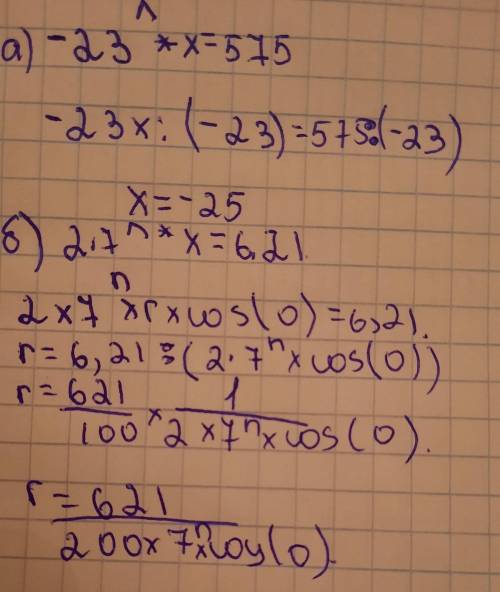 а) -23 ^ * x = 575
-23x : (-23) = 575 : (-23)
x = -25
б) 2.7 ^ n * x = 6.21.
2 x 7 ^ n x r x cos(0) = 6,21.
r = 6,21 : (2.7 ^ n x cos(0))
r = 621/100 x 1/(2 x 7 ^ n x cos(0)).
r = 621/(200 x 7 ^ n x cos(0)).